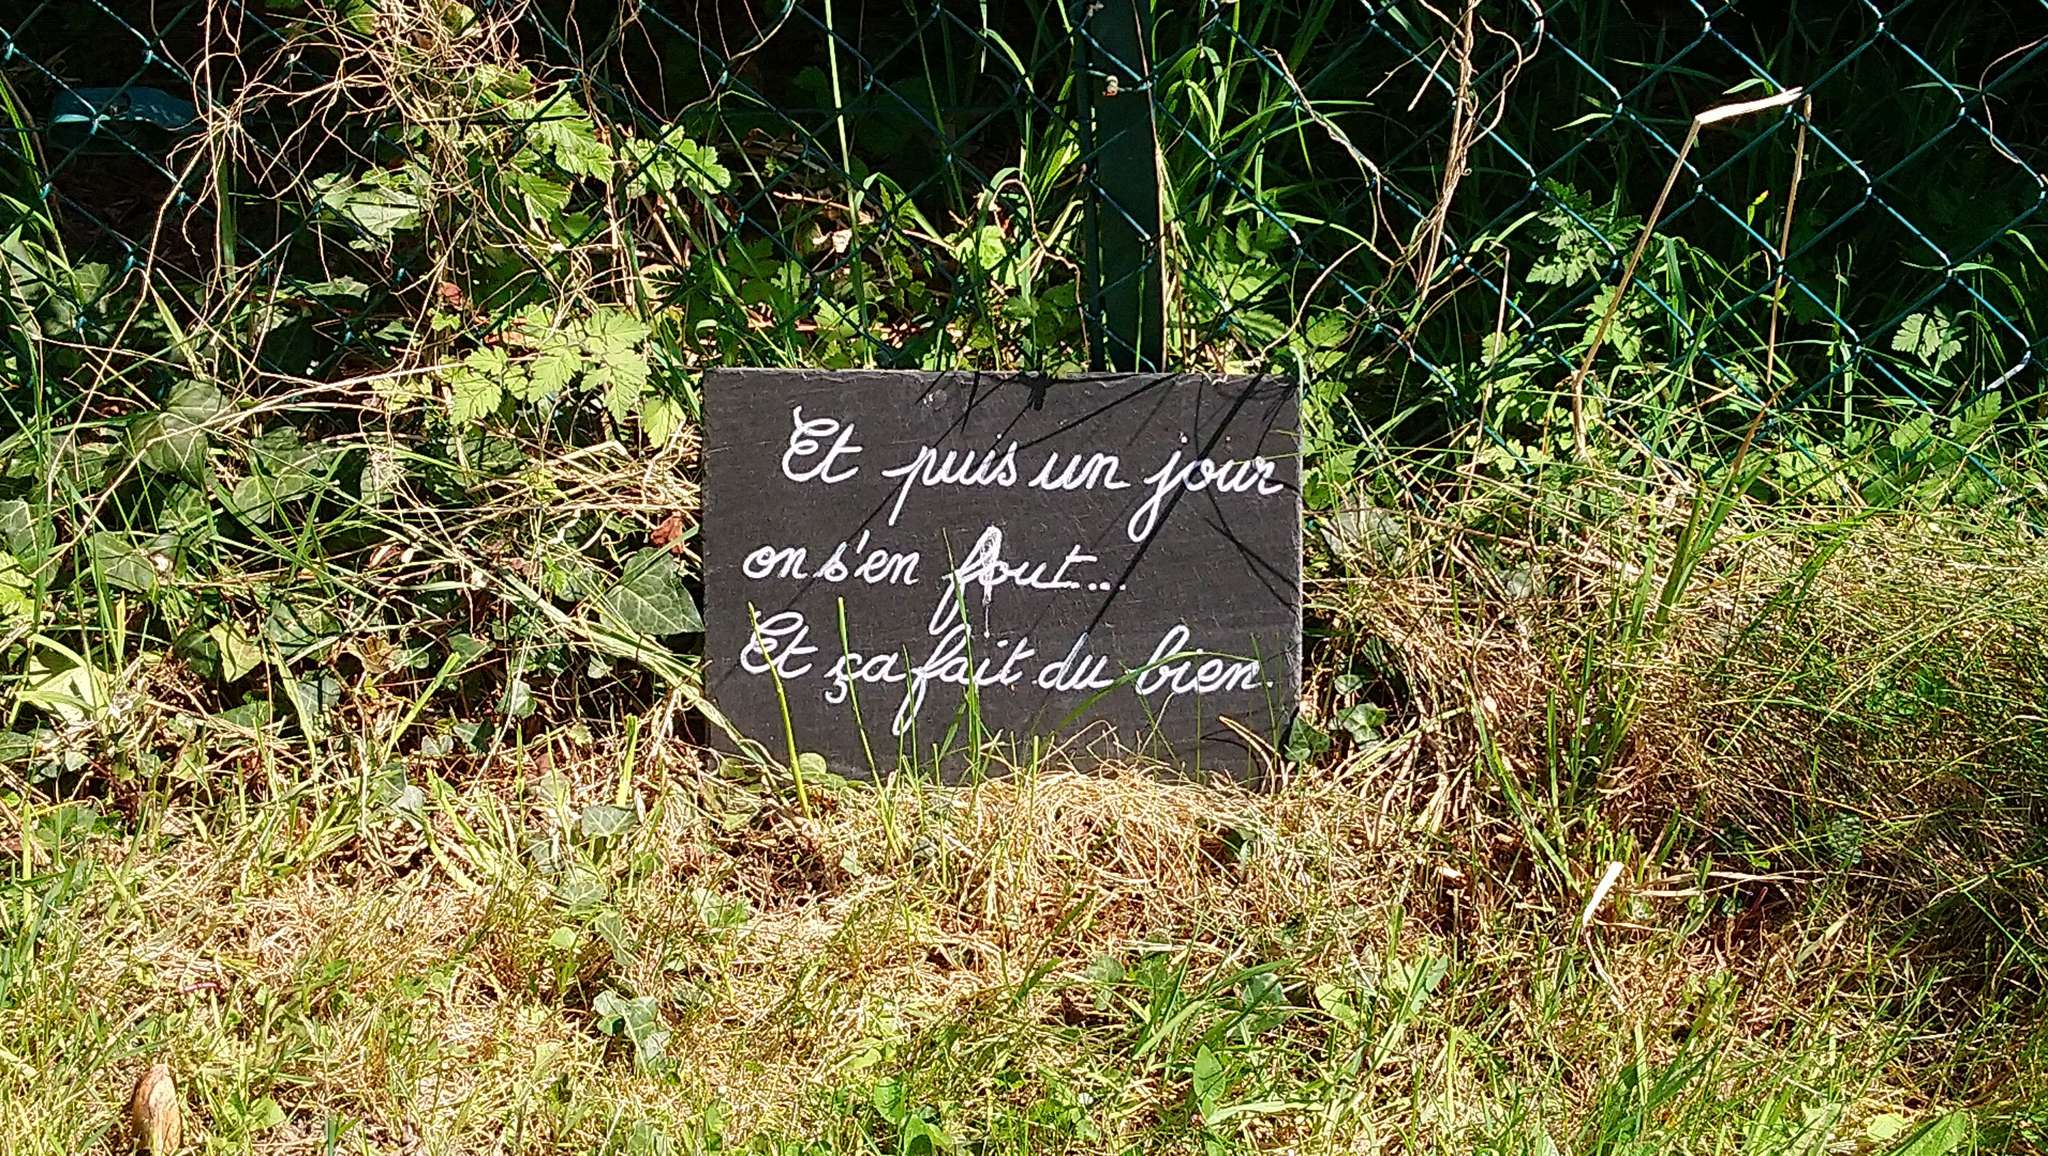 Et puis un jour
on s'en fout...
Et ça fait du bien.